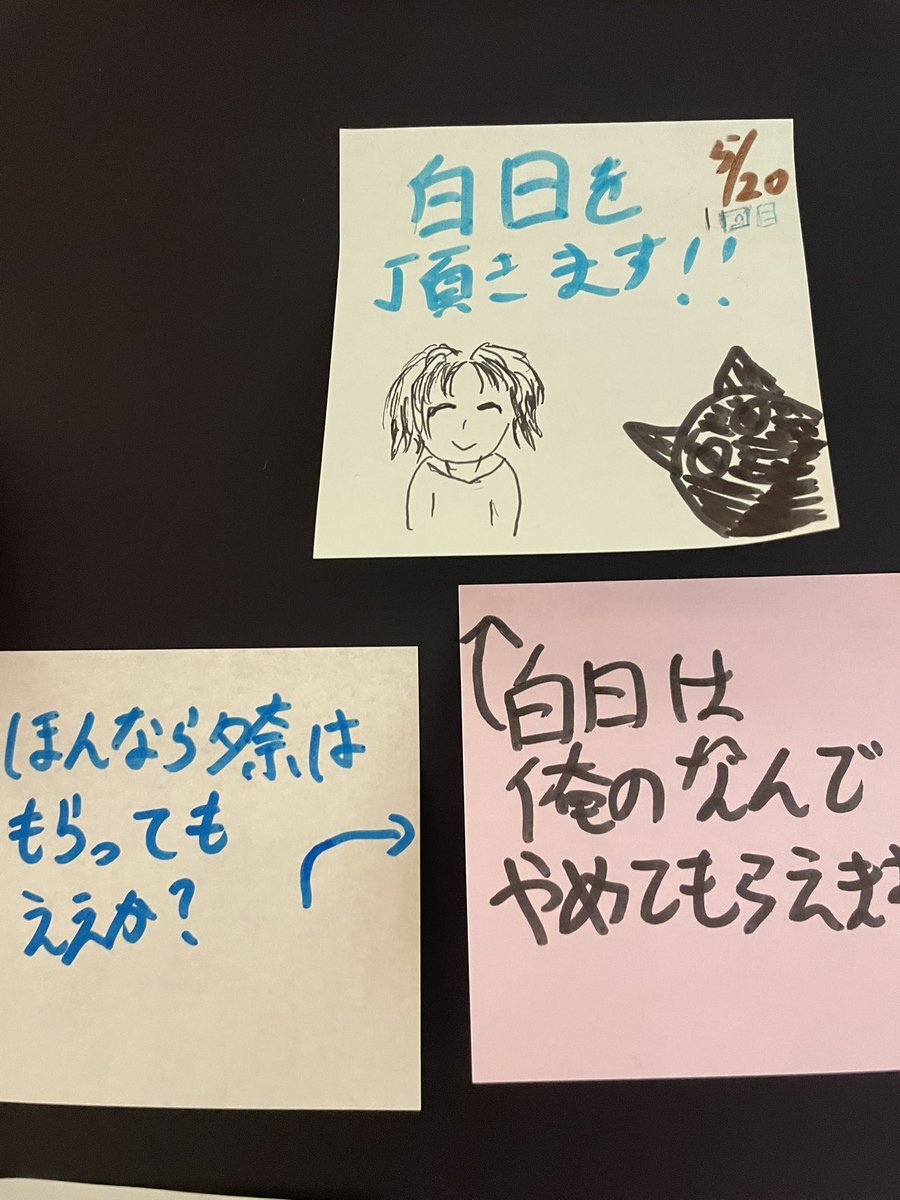 白日を
頂きます!!
5/20
1回目
白日は
俺のなんで
やめてもらえま
ほんなら夕奈は
もらっても
ええか?